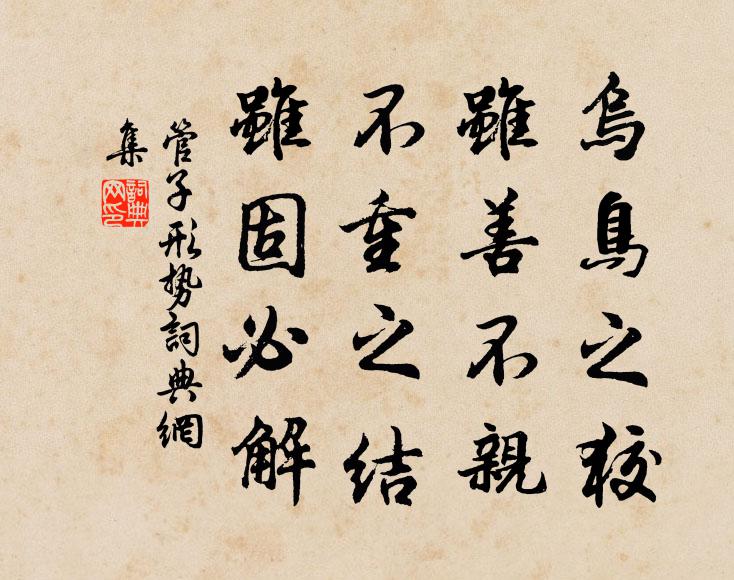 烏鳥之狡
雖善不親
不重之結
雖固必解
管子形勢詞典網
集
詞典网印